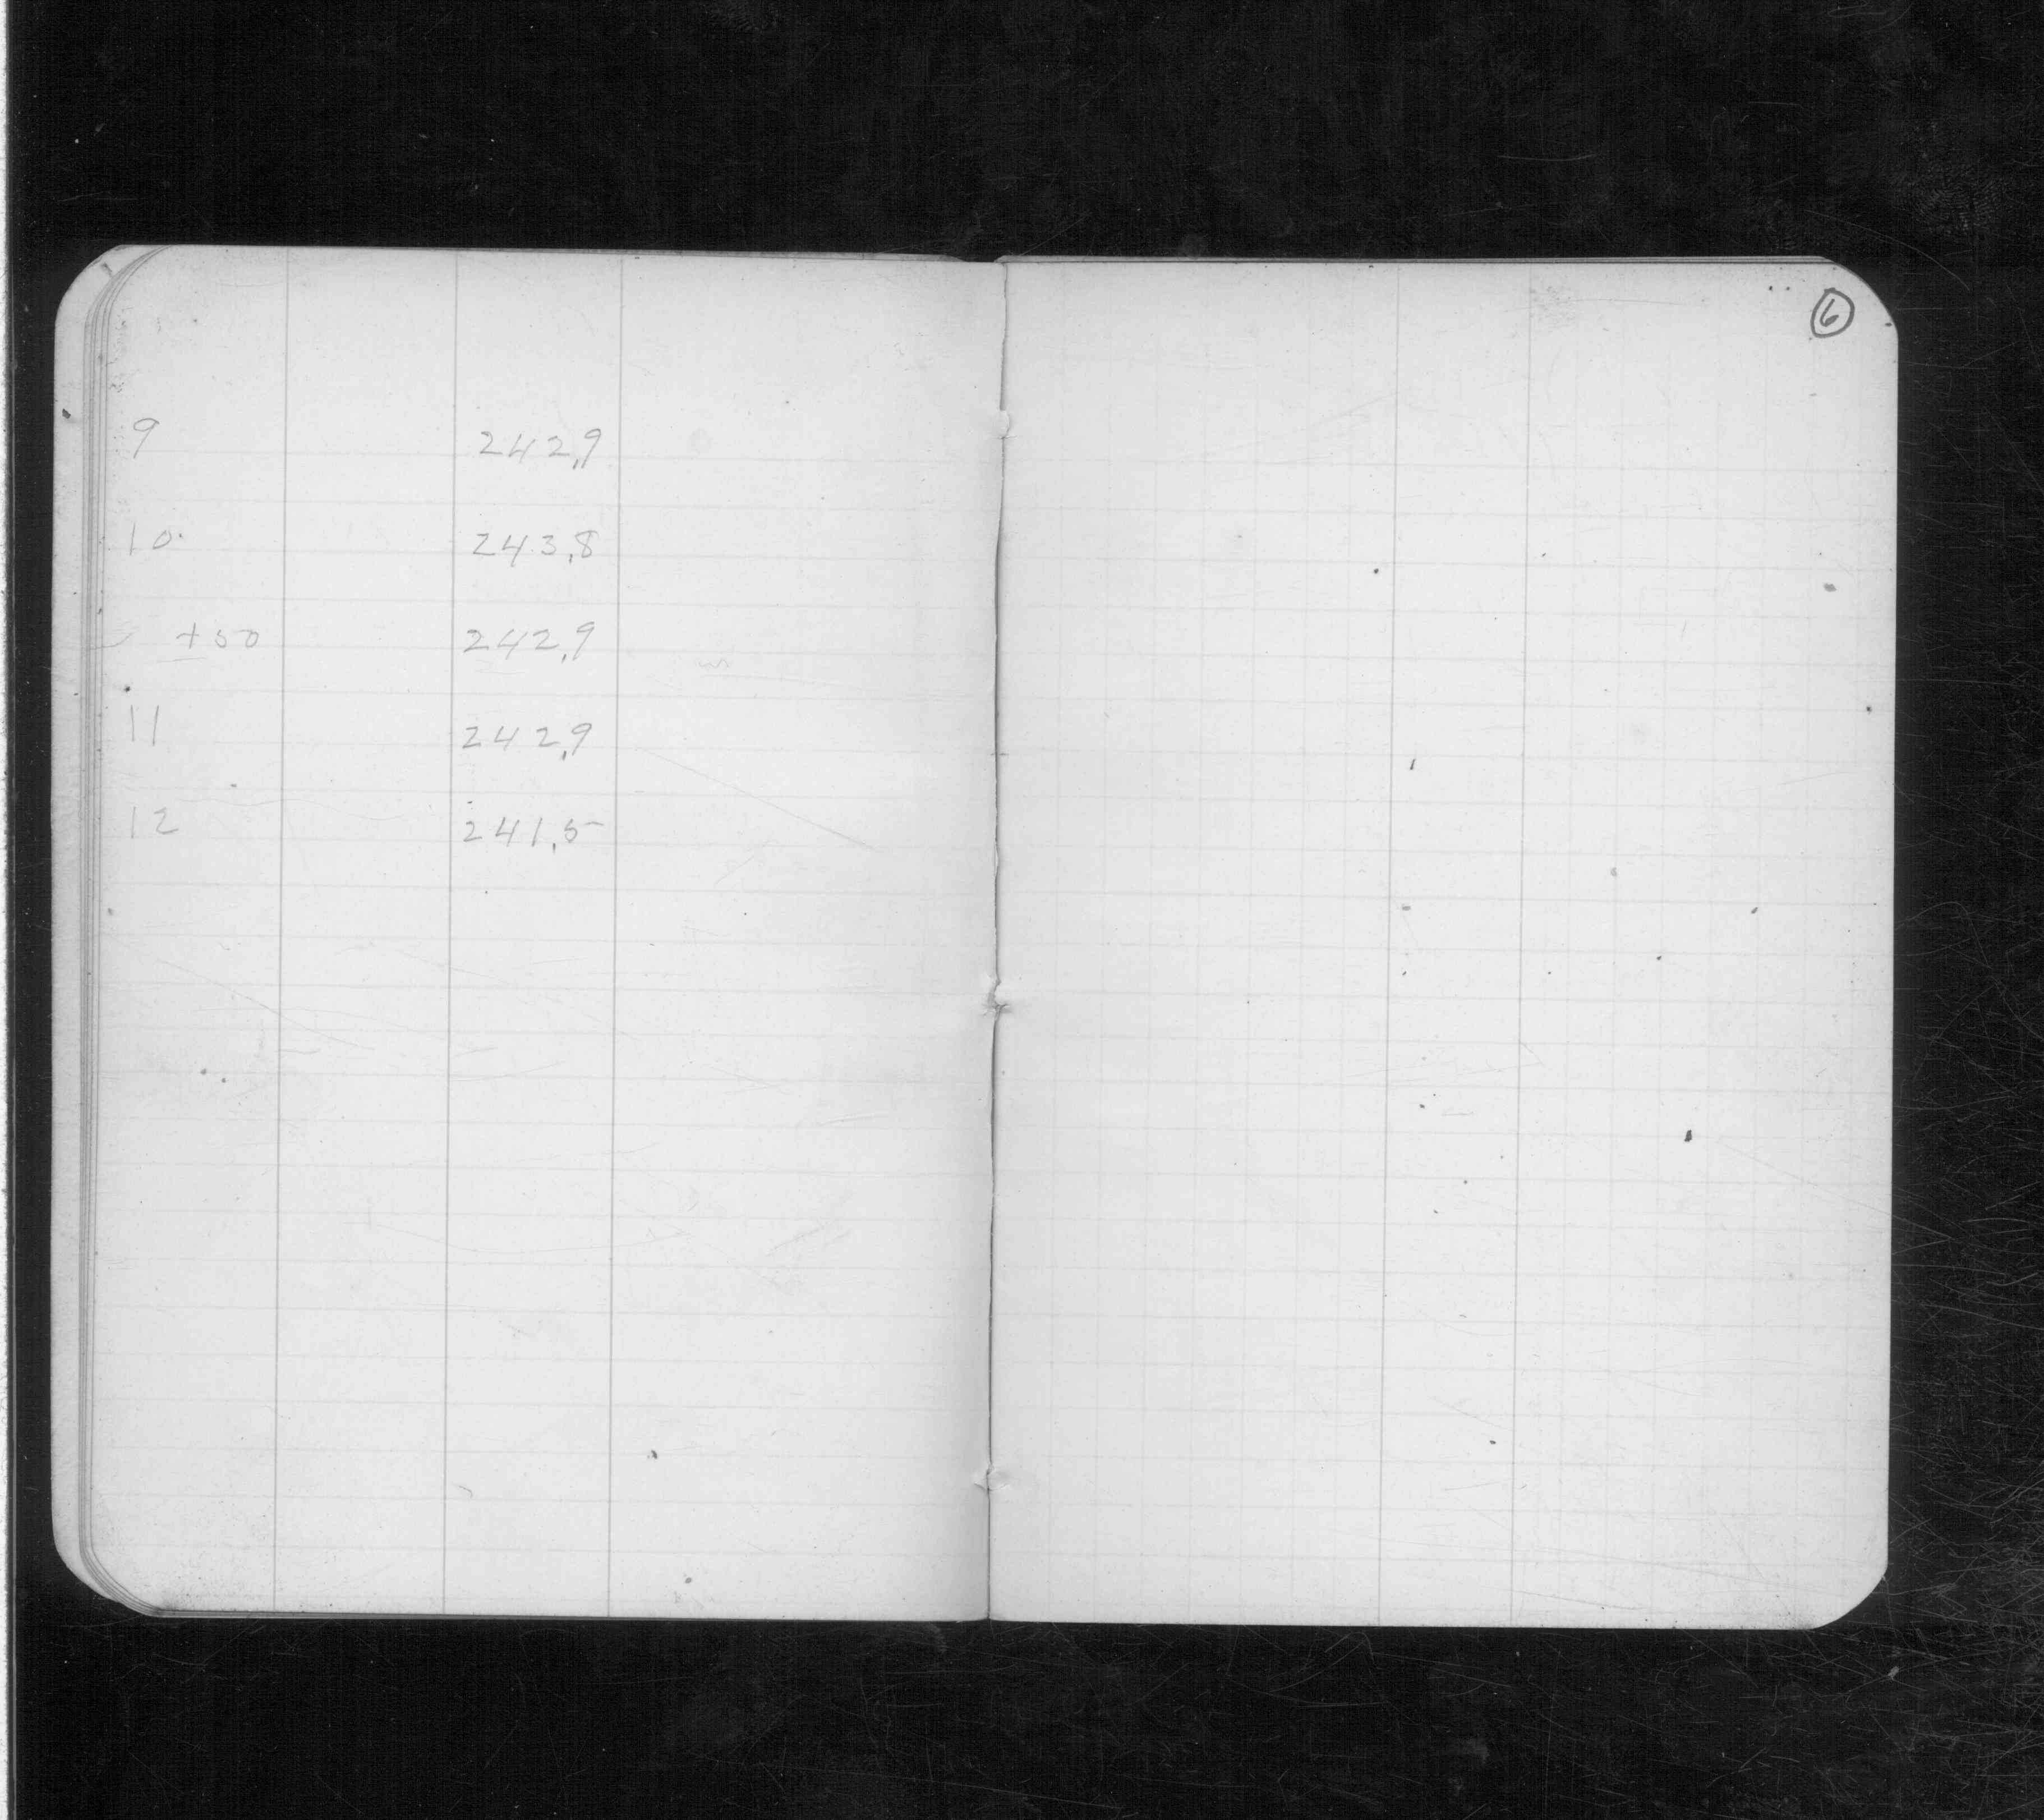 6
9 242.9
10 243.8
+50 242.9
11 242.9
12 241.5